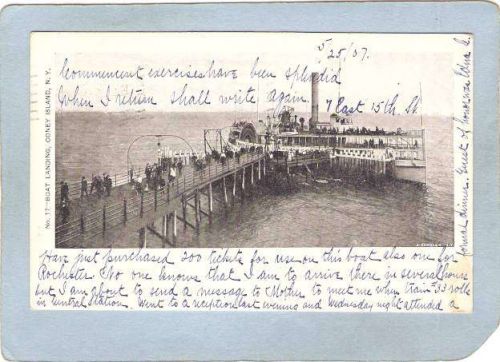 5/25/07.
Commencment exercises have been splendid
When I return shall write again.
7 East 15th St
No. 17 - BOAT LANDING, CONEY ISLAND, N.Y.
Have just purchased 200 tickets for use on this boat also one for
Rochester. No one knows that I am to arrive there in several hours
but I am about to send a message to Mother to meet me when train #33 rolls
in Central Station. Went to a reception last evening and Wednesday night attended a
formal dinner. Guest of honor was Edna